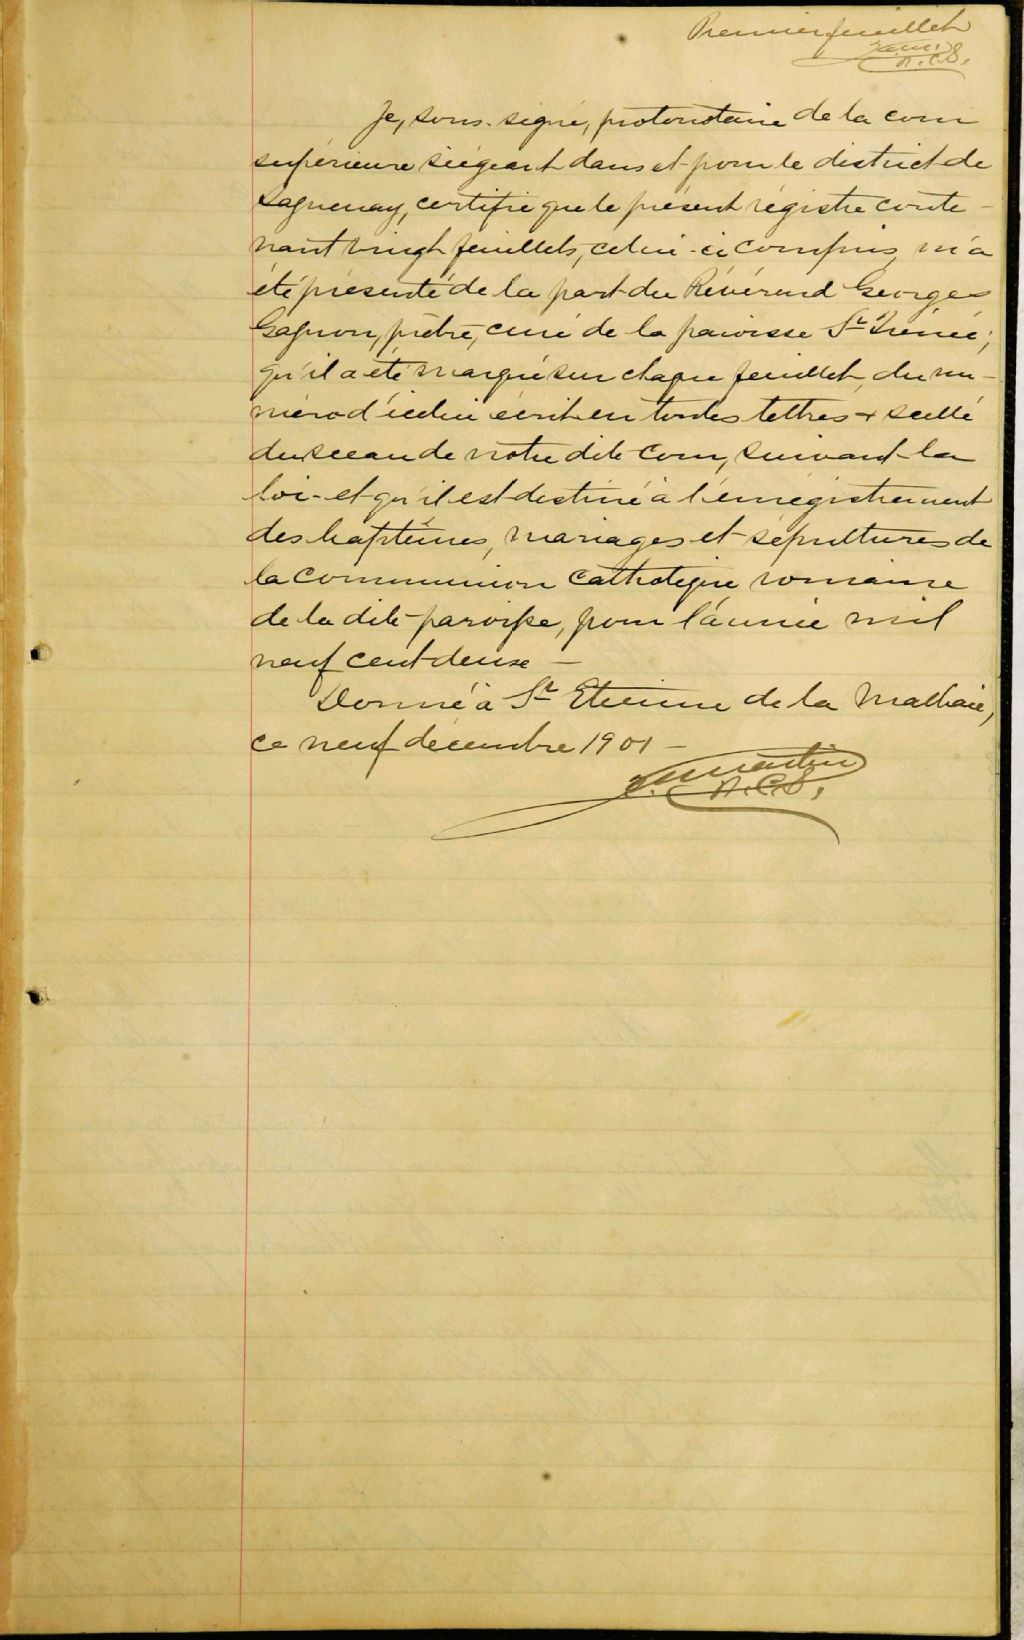 Premier feuillet
J.A.M.
P.C.S.
Je, sous-signé, protonotaire de la cour
supérieure siégeant dans et pour le district de
Saguenay, certifie que le présent régistre conte-
nant vingt feuillets, celui-ci compris, m'a
été présenté de la part du Révérend Georges
Gagnon, prêtre, curé de la paroisse St Irénée;
qu'il a été marqué sur chaque feuillet, du nu-
méro d'icelui écrit en toutes lettres + scellé
du sceau de notre dite cour, suivant la
loi - et qu'il est destiné à l'enrégistrement
des baptêmes, mariages et sépultures de
la communion catholique romaine
de la dite paroisse, pour l'année mil
neuf cent deux —
Donné à St Etienne de la Malbaie,
ce neuf décembre 1901 —
Martin
P.C.S.